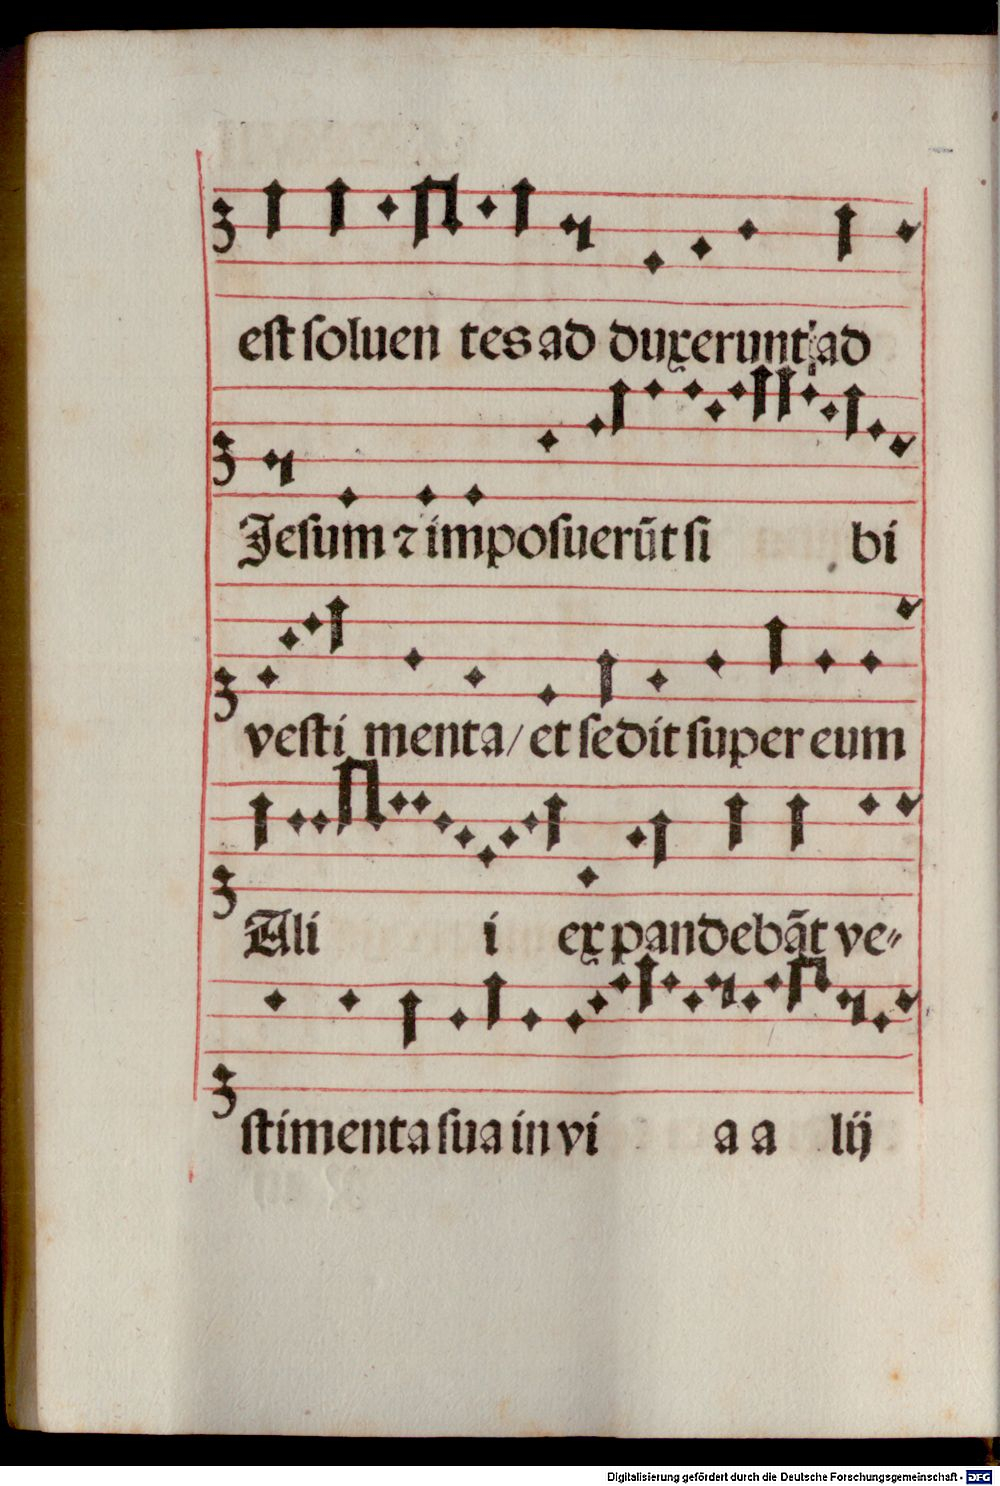 est soluen tes ad duxerunt ad
Jesum ⁊ imposuerũt si bi
vesti menta/ et sedit super eum
Ali i ex pandebãt ve⸗
stimenta sua in vi a a lij
Digitalisierung gefördert durch die Deutsche Forschungsgemeinschaft - DFG